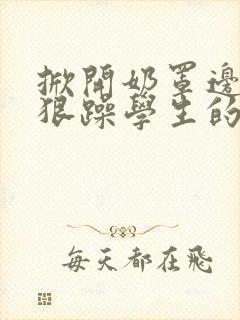 掀開奶罩邊
狠躁學生的
每天都在飛